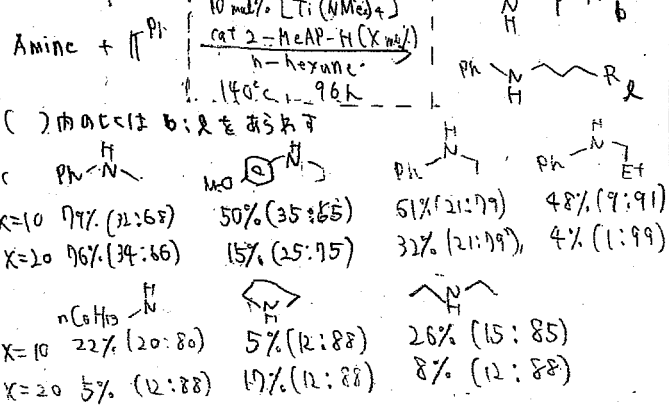 10 mol% [Ti(NMe2)4]
Amine + Ph cat 2-MeAP-H (X mol%)
n-hexane
140°C 96h
N
H
b
Ph N
H R
l
( )内の比は b:l をあらわす
Ph H N
MeO H N
Ph H N
Ph H N Et
X=10 79% (32:68) 50% (35:65) 61% (21:79) 48% (9:91)
X=20 76% (34:66) 15% (25:75) 32% (21:79), 4% (1:99)
nC6H13 H N
N H
N H
X=10 22% (20:80) 5% (12:88) 26% (15:85)
X=20 5% (12:88) 17% (12:88) 8% (12:88)